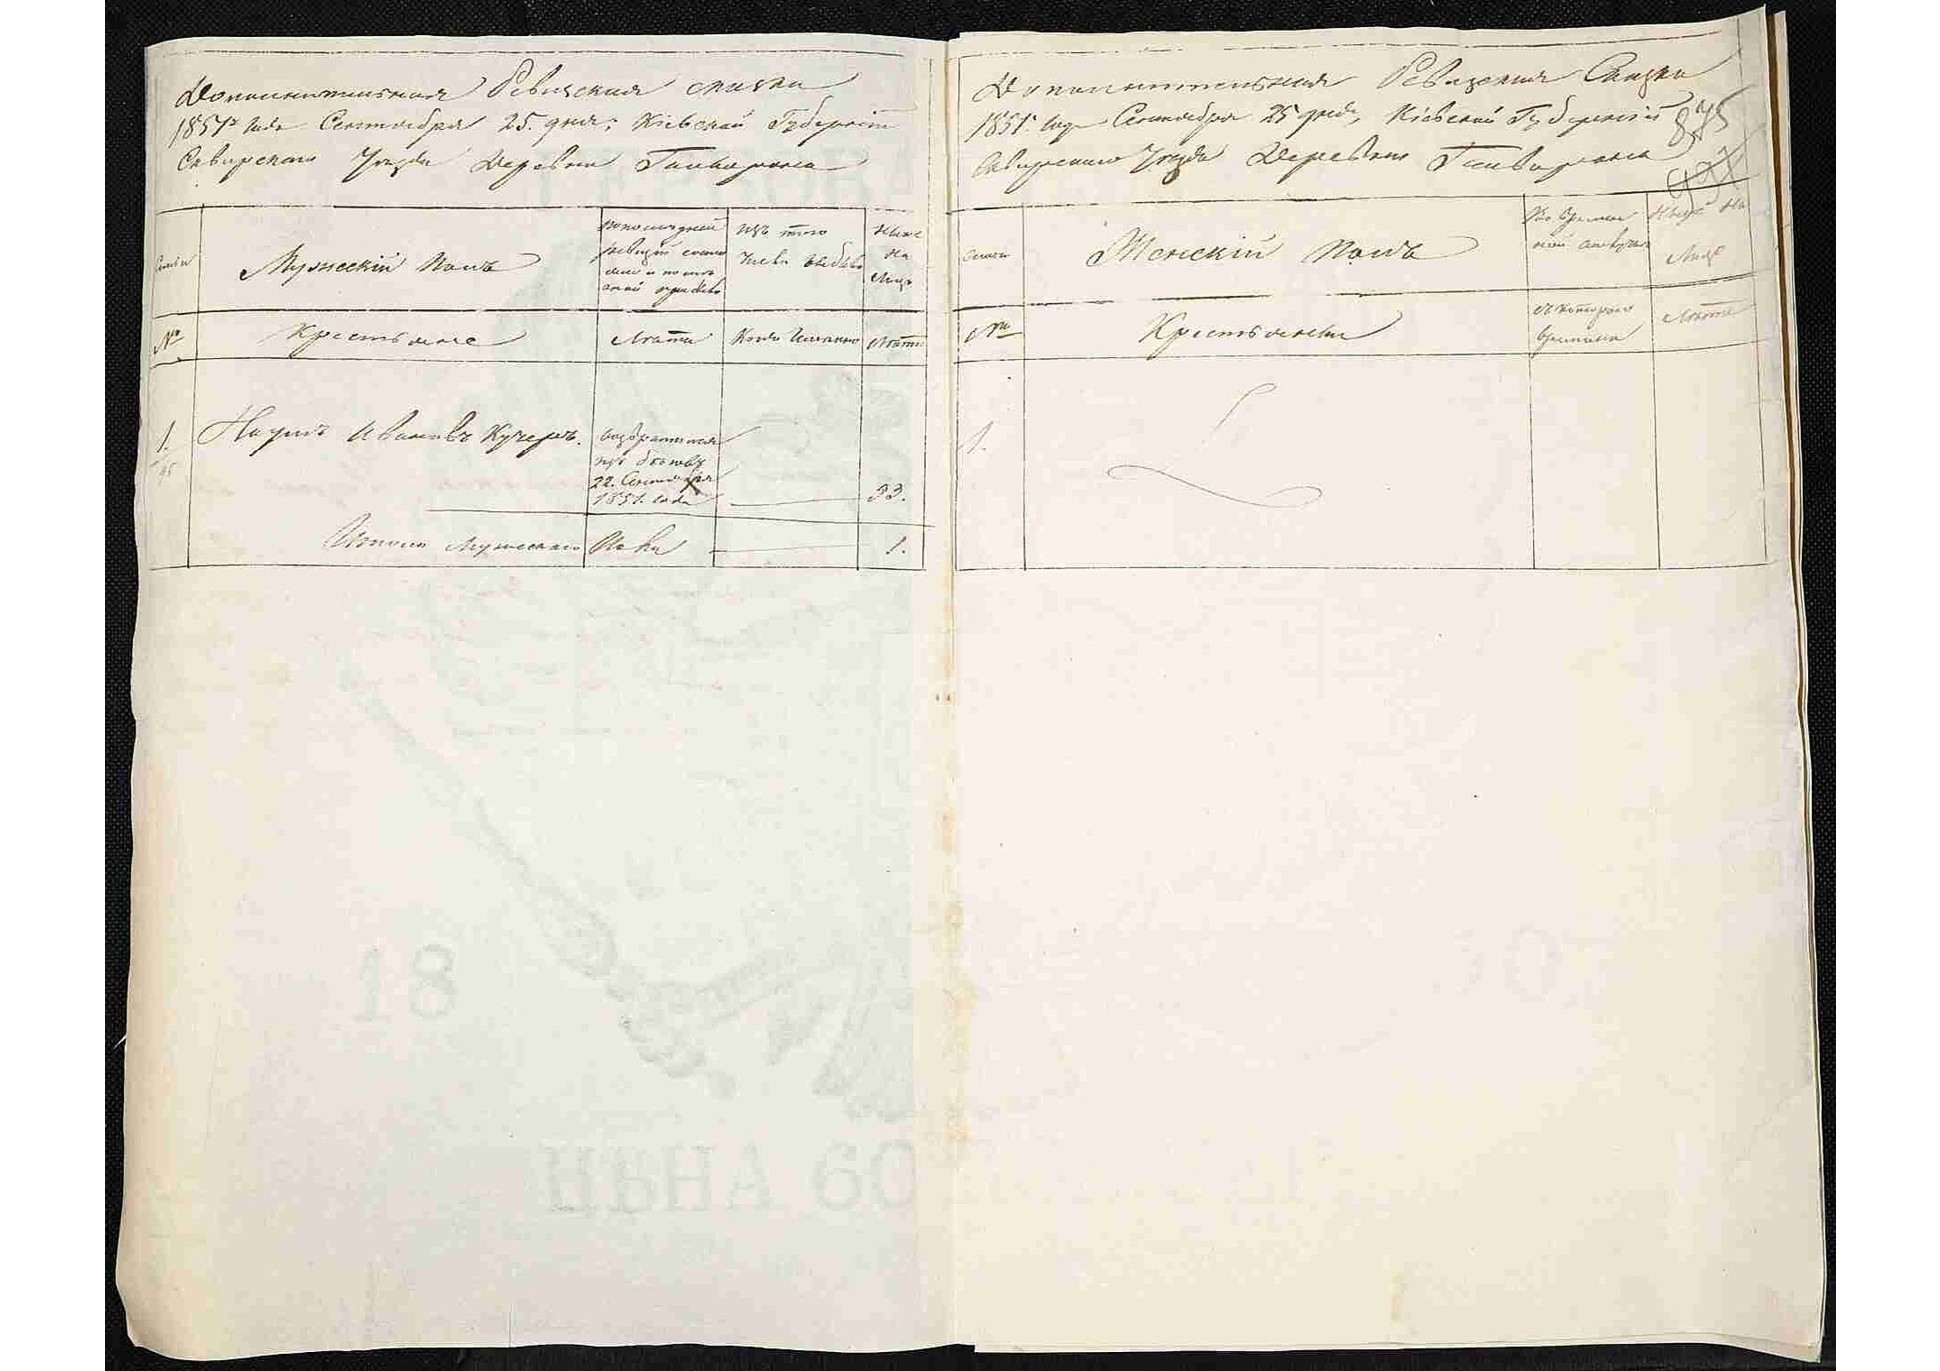 Дополнительная Ревизская сказка
1851го года Сентября 25. дня; Кіевской Губерніи
Сквирского Уезда Деревни Гальворона
Семьи
Мужескій Полъ
По последней
ревизіи состо
яло и после
оной прибыло
Изъ того
числа выбыло
Ныне
на
Лицо
№
Крестьяне
Лета
Когда именно
Лета
1.
Наумъ Ивановъ Кучеръ.
возвратился
изъ бегов
22. Сентября
1851. года
33.
Итого Мужеского Пола
1.
Дополнительная Ревизская Сказка
1851. года Сентября 25 дня, Кіевской Губерніи
Сквирского Уезда Деревни Гальворона
875
Семьи
Женскій Полъ
Во времен
ной отлучке
Ныне на
Лицо
№
Крестьянки
съ которого
времени
Лета
1.
18
ЦѢНА 60